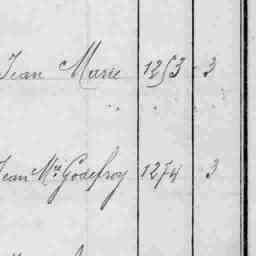 Jean Marie 1253 3
" " " "
Jean Mie Godefroy 1274 3